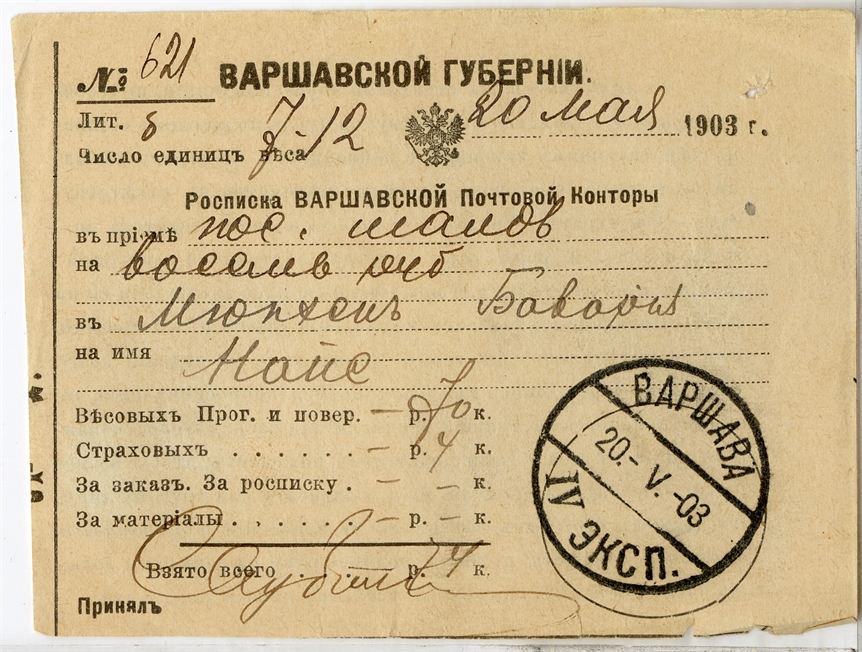 № 621 ВАРШАВСКОЙ ГУБЕРНІИ.
Лит. 7-12 20 мая 1903 г.
Число единицъ вѣса
Росписка ВАРШАВСКОЙ Почтовой Конторы
въ пріемѣ пос.
на восемь руб
въ Мюнхенъ Баварія
на имя
Вѣсовыхъ Прог. и повер. – р. 70 к.
Страховыхъ . . . . . . – р. 4 к.
За заказъ. За росписку . – – к.
За матеріалы . . . . . – р. – к.
Взято всего . . . . – р. 74 к.
Принялъ
ВАРШАВА
20.- V. -03
IV ЭКСП.